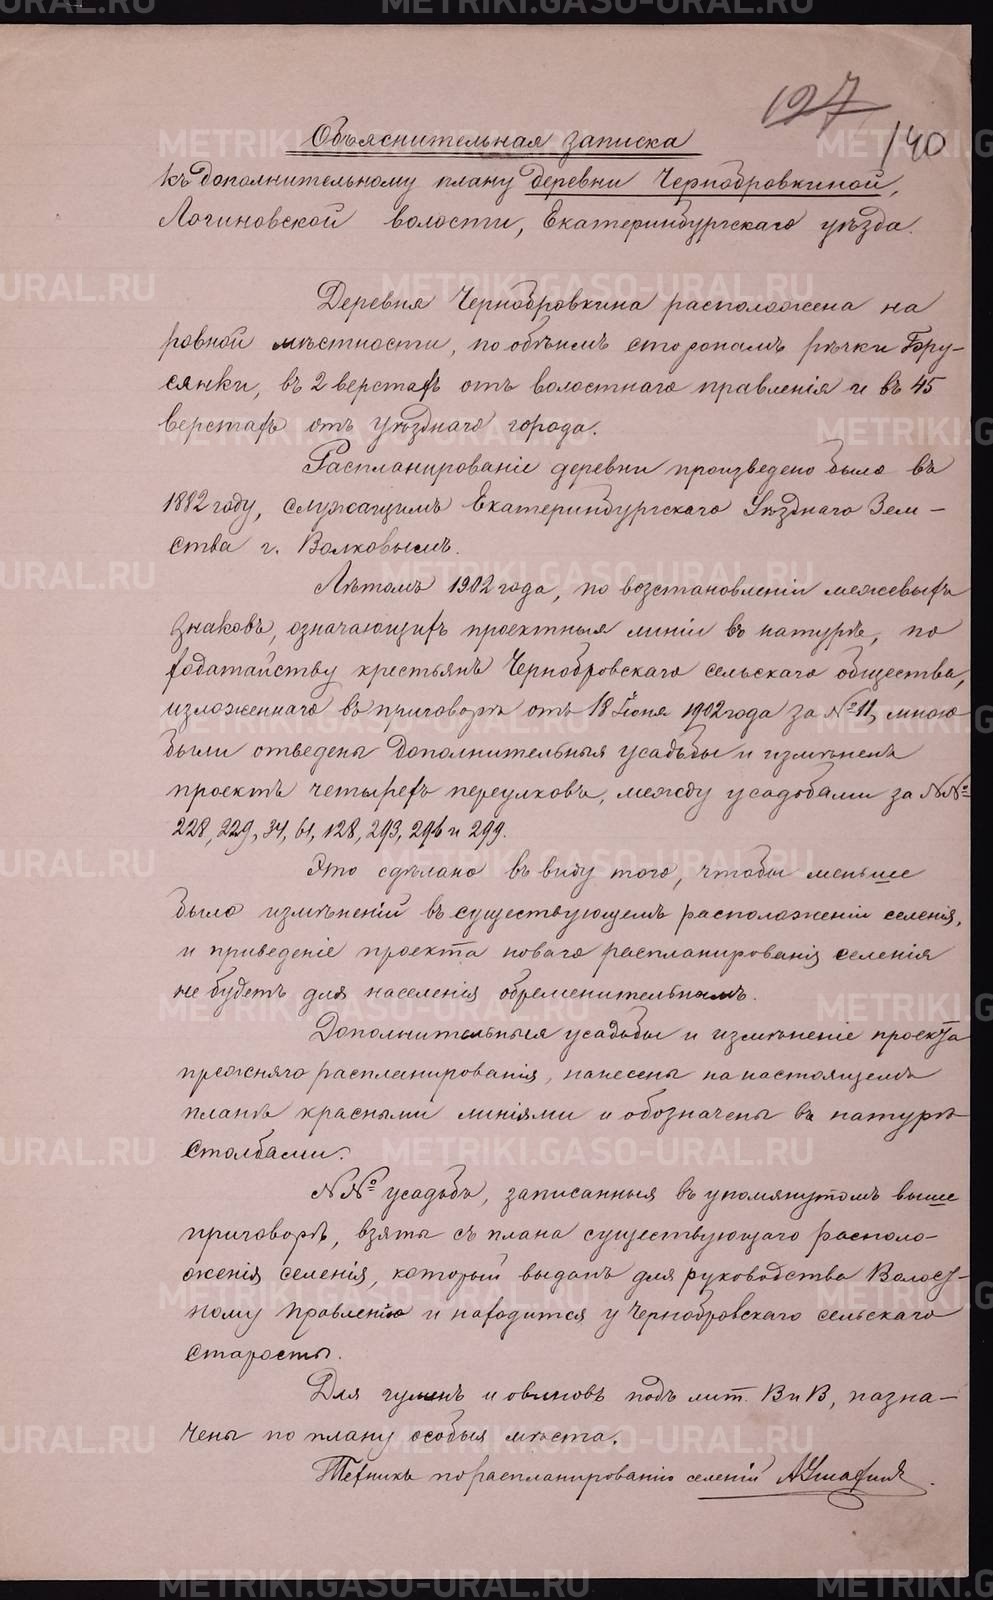 127
140
Объяснительная записка
къ дополнительному плану деревни Чернобровкиной,
Логиновской волости, Екатеринбургскаго уѣзда.
Деревня Чернобровкина расположена на
ровной мѣстности, по обѣимъ сторонамъ рѣчки Бру-
сянки, въ 2 верстахъ отъ волостнаго правленія и въ 45
верстахъ отъ уѣзднаго города.
Распланированіе деревни произведено было въ
1882 году, служащимъ Екатеринбургскаго Уѣзднаго Зем-
ства г. Волковымъ.
Лѣтомъ 1902 года, по возстановленіи межевыхъ
знаковъ, означающихъ проектныя линіи въ натурѣ, по
ходатайству крестьянъ Чернобровскаго сельскаго общества,
изложеннаго въ приговорѣ отъ 18 Іюня 1902 года за №11, мною
были отведены дополнительныя усадьбы и измѣненъ
проектъ четырехъ переулковъ, между усадьбами за №№
228, 229, 34, 61, 128, 293, 296 и 299.
Это сдѣлано въ виду того, чтобы меньше
было измѣненій въ существующемъ расположеніи селенія,
и приведеніе проекта новаго распланированія селенія
не будетъ для населенія обременительнымъ.
Дополнительныя усадьбы и измѣненіе проекта
прежняго распланированія, нанесены на настоящемъ
планѣ красными линіями и обозначены въ натурѣ
столбами.
№№ усадьбъ, записанныя въ упомянутомъ выше
приговорѣ, взяты съ плана существующаго располо-
женія селенія, который выданъ для руководства Волост-
ному Правленію и находится у Чернобровскаго сельскаго
старосты.
Для гуменъ и овиновъ подъ лит. В и В, назна-
чены по плану особыя мѣста.
Техникъ по распланированію селеній